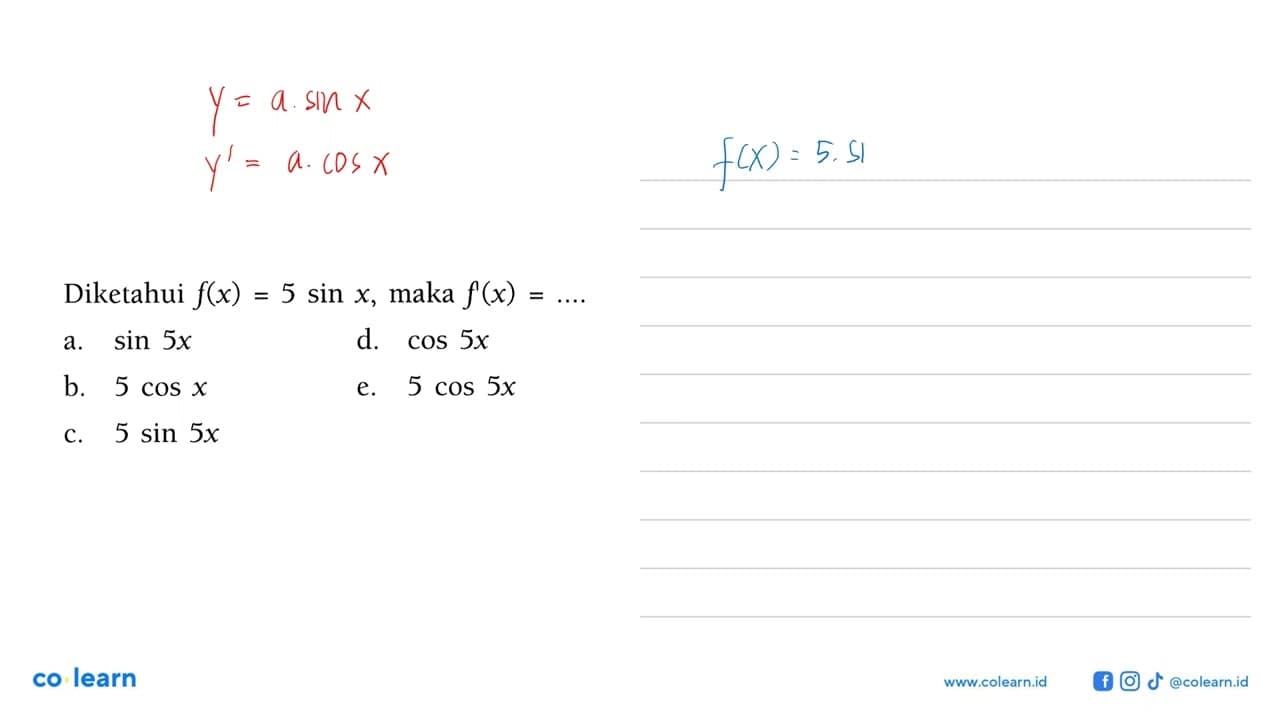 y = a. sin x
y' = a. cos x
f(x) = 5. si
Diketahui f(x) = 5 sin x, maka f'(x) = ....
a. sin 5x d. cos 5x
b. 5 cos x e. 5 cos 5x
c. 5 sin 5x
co learn www.colearn.id @colearn.id